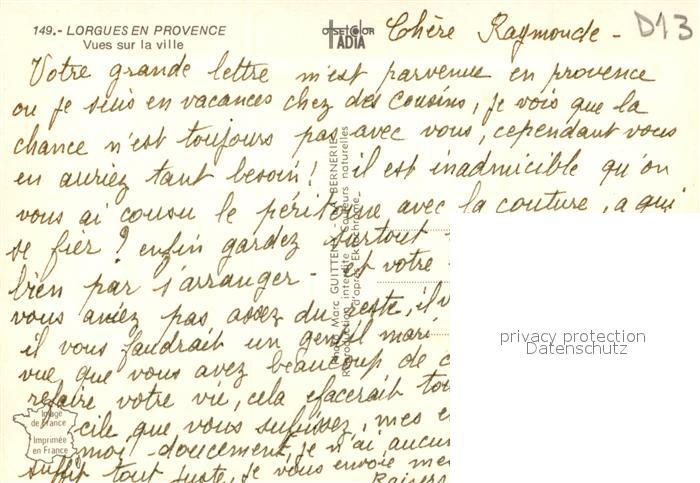 149.- LORGUES EN PROVENCE
Vues sur la ville
OFFSETCOLOR
IADIA
Chère Raymonde -
D13
Votre grande lettre m'est parvenue en provence
ou je suis en vacances chez des cousins, je vois que la
chance n'est toujours pas avec vous, cependant vous
en auriez tant besoin! il est inadmicible qu'on
vous ai cousu le péritoine avec la couture, a qui
se fier? enfin gardez surtout
bien par s'arranger - est votre
vous aviez pas assez du reste, il
il vous faudrait un gentil mari
vue que vous avez beaucoup de
refaire votre vie, cela efacerait
cile que vous subissez, mes
moi doucement, je n'ai aucun
suffit tout juste, je vous envoie mes
Baisers
Photo Marc GUITTENY - LA BERNERIE
Reproduction interdite - Couleurs naturelles
d'après Ektachrome
privacy protection
Datenschutz
Image
de France
Imprimée
en France